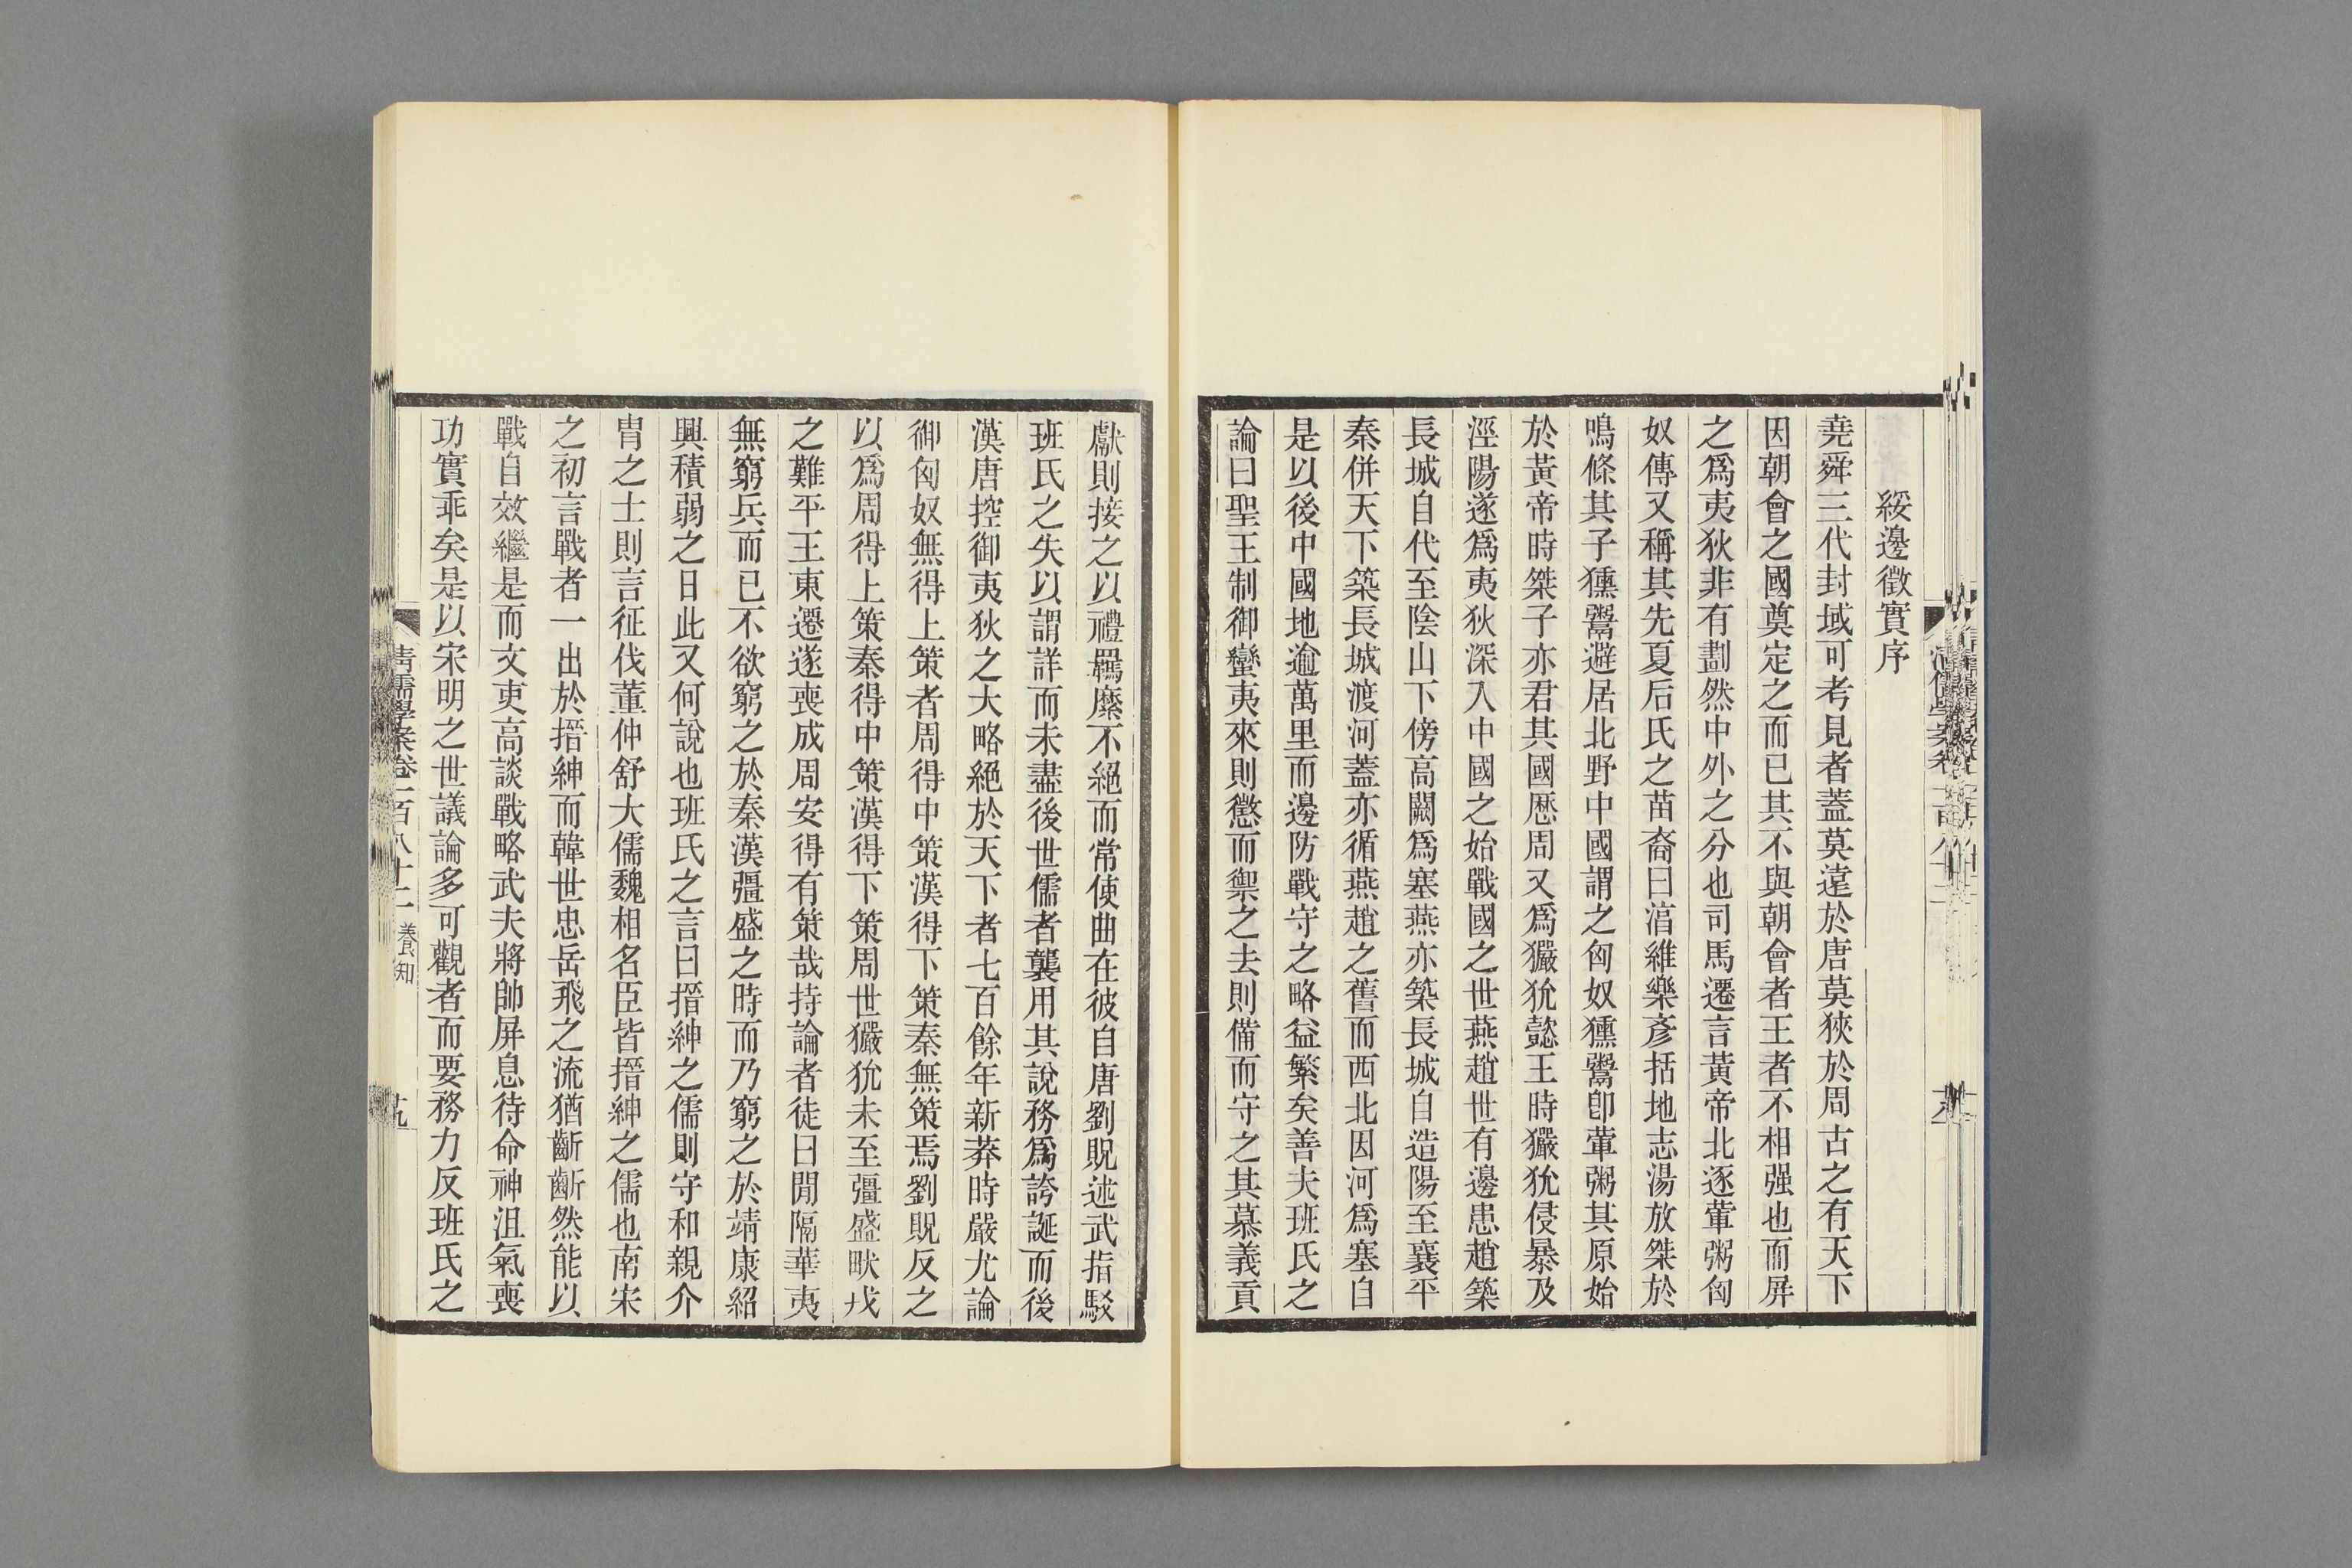 綏邊徵實序
堯舜三代封域可考見者蓋莫遠於唐莫狹於周古之有天下
因朝會之國奠定之而已其不與朝會者王者不相强也而屏
之爲夷狄非有劃然中外之分也司馬遷言黃帝北逐葷粥匈
奴傳又稱其先夏后氏之苗裔曰淳維樂彥括地志湯放桀於
鳴條其子獯鬻避居北野中國謂之匈奴獯鬻卽葷粥其原始
於黃帝時桀子亦君其國歷周又爲玁狁懿王時玁狁侵暴及
涇陽遂爲夷狄深入中國之始戰國之世燕趙世有邊患趙築
長城自代至陰山下傍高闕爲塞燕亦築長城自造陽至襄平
秦併天下築長城渡河蓋亦循燕趙之舊而西北因河爲塞自
是以後中國地逾萬里而邊防戰守之略益繁矣善夫班氏之
論曰聖王制御蠻夷來則懲而禦之去則備而守之其慕義貢
獻則接之以禮羈縻不絕而常使曲在彼自唐劉貺述武指駁
班氏之失以謂詳而未盡後世儒者襲用其說務爲誇誕而後
漢唐控御夷狄之大略絕於天下者七百餘年新莽時嚴尤論
御匈奴無得上策者周得中策漢得下策秦無策焉劉貺反之
以爲周得上策秦得中策漢得下策周世玁狁未至彊盛畎戎
之難平王東遷遂喪成周安得有策哉持論者徒曰閒隔華夷
無窮兵而已不欲窮之於秦漢彊盛之時而乃窮之於靖康紹
興積弱之日此又何說也班氏之言曰搢紳之儒則守和親介
胄之士則言征伐董仲舒大儒魏相名臣皆搢紳之儒也南宋
之初言戰者一出於搢紳而韓世忠岳飛之流猶齗齗然能以
戰自效繼是而文吏高談戰略武夫將帥屏息待命神沮氣喪
功實乖矣是以宋明之世議論多可觀者而要務力反班氏之
清儒學案卷一百八十二 養知